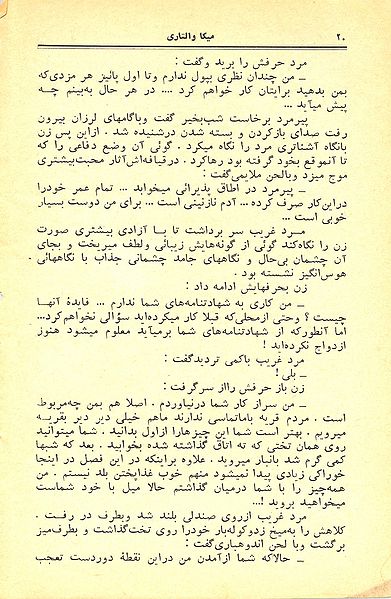 ۲۰ میکا والتاری
مرد حرفش را برید و گفت :
ــ من چندان نظری بپول ندارم و تا اول پائیز هر مزدی که
بمن بدهید برایتان کار خواهم کرد .... در هر حال به‌بینم چه
پیش میآید ...
پیرمرد برخاست شب‌بخیر گفت و باگامهای لرزان بیرون
رفت صدای بازکردن و بسته شدن درشنیده شد . ازاین پس زن
بانگاه آشناتری مرد را نگاه میکرد . گوئی آن وضع دفاعی را که
تا آنموقع بخود گرفته بود رهاکرد . درقیافه‌اش‌آثار محبت‌بیشتری
موج میزد و بالحن ملایمی‌گفت :
ــ پیرمرد در اطاق پذیرائی میخوابد ... تمام عمر خودرا
دراین‌کار صرف کرده ... آدم نازنینی است ... برای من دوست بسیار
خوبی است ...
مرد غریب سر برداشت تا بـا آزادی بیشتری صورت
زن را نگاه‌کند گوئی از گونه‌هایش زیبائی و لطف میریخت و بجای
آن چشمان بی‌حال و نگاههای جامد چشمانی جذاب با نگاههائی
هوس‌انگیز نشسته بود .
زن بحرفهایش ادامه داد :
ــ من کاری به شهادتنامه‌های شما ندارم ... فایدۀ آنهـا
چیست ؟ و حتی ازمحلی‌که قبلا کار میکرده‌اید سؤالی نخواهم‌کرد...
اما آنطورکه از شهادتنامه‌های شما برمیآید معلوم میشود هنوز
ازدواج نکرده‌اید !
مرد غریب باکمی تردیدگفت :
ــ بلی !
زن باز حرفش رااز سرگرفت :
ــ من سراز کار شما درنیاوردم . اصلا هم بمن چه‌مربوط
است . مردم قریه باماتماسی ندارند ماهم خیلی دیر دیر بقریـه
میرویم . بهتر است شما این چیزهارا ازاول بدانید . شما میتوانید
روی همان تختی که ته اتاق گذاشته شده بخوابید . بعد که شبها
کمی گرم شد بانبار میروید . علاوه براینکه در این فصل در اینجا
خوراکی زیادی پیدا نمیشود منهم خوب غذاپختن بلد نیستم . من
همه‌چیز را با شما درمیان گذاشتم حالا میل با خود شماست
میخواهید بروید !...
مرد غریب ازروی صندلی بلند شد و بطرف در رفت .
کلاهش را به‌میخ زدوکوله‌بار خودرا روی تخت‌گذاشت و بطرف‌میز
برگشت و با لحن اندوهباری‌گفت :
ــ حالاکه شما ازآمدن من دراین نقطۀ دوردست تعجب